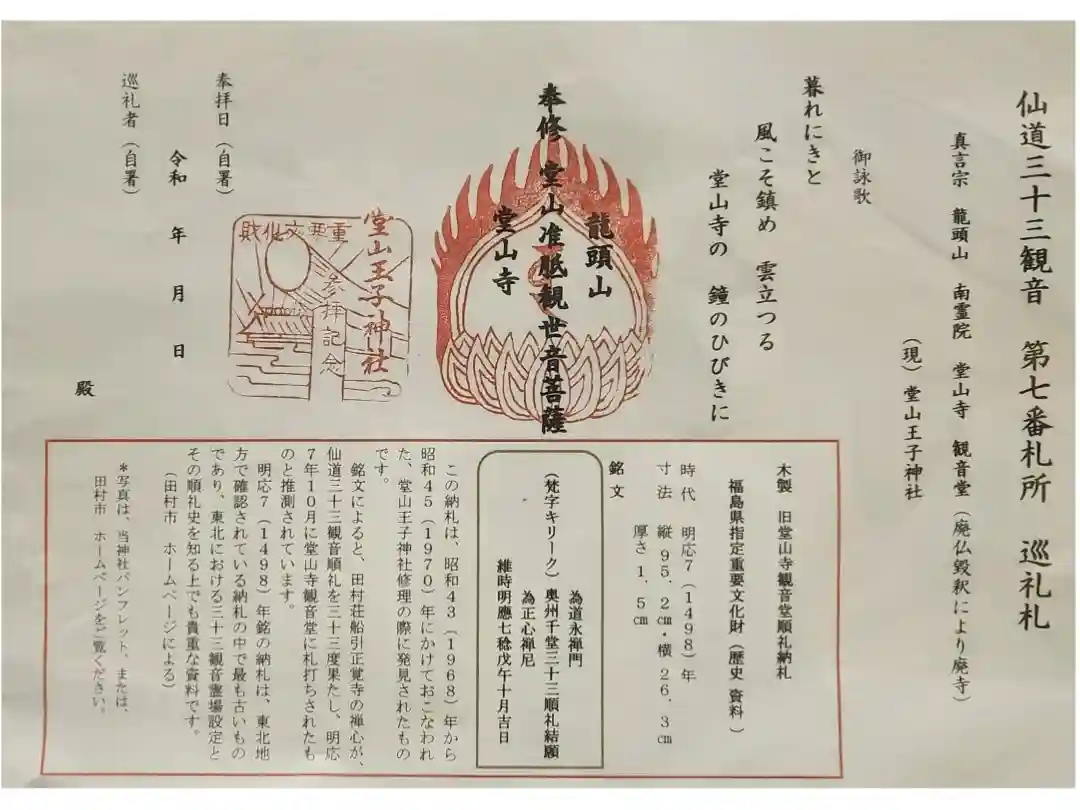 仙道三十三観音　第七番札所　巡礼札
真言宗　龍頭山　南霊院　堂山寺　観音堂（廃仏毀釈により廃寺）
（現）堂山王子神社
御詠歌
暮れにきと
風こそ鎮め　雲立つる
堂山寺の　鐘のひびきに
龍頭山
奉修　堂山准胝観世音菩薩
堂山寺
堂山王子神社
重要文化財
参拝記念
奉拝日（自署）
令和　年　月　日
巡礼者（自署）
殿
木製　旧堂山寺観音堂順礼納札
福島県指定重要文化財（歴史　資料）
時代　明応7（1498）年
寸法　縦　95．2㎝・横　26．3㎝
厚さ1．5㎝
銘文
為道永禅門
（梵字キリーク）奥州千堂三十三順礼結願
為正心禅尼
維時明應七稔戊午十月吉日
この納札は、昭和43（1968）年から
昭和45（1970）年にかけておこなわれ
た、堂山王子神社修理の際に発見されたもの
です。
銘文によると、田村荘船引正覚寺の禅心が、
仙道三十三観音順礼を三十三度果たし、明応
7年10月に堂山寺観音堂に札打ちされたも
のと推測されています。
明応7（1498）年銘の納札は、東北地
方で確認されている納札の中で最も古いもの
であり、東北における三十三観音霊場設定と
その順礼史を知る上でも貴重な資料です。
（田村市　ホームページによる）
＊写真は、当神社パンフレット、または、
田村市　ホームページをご覧ください。